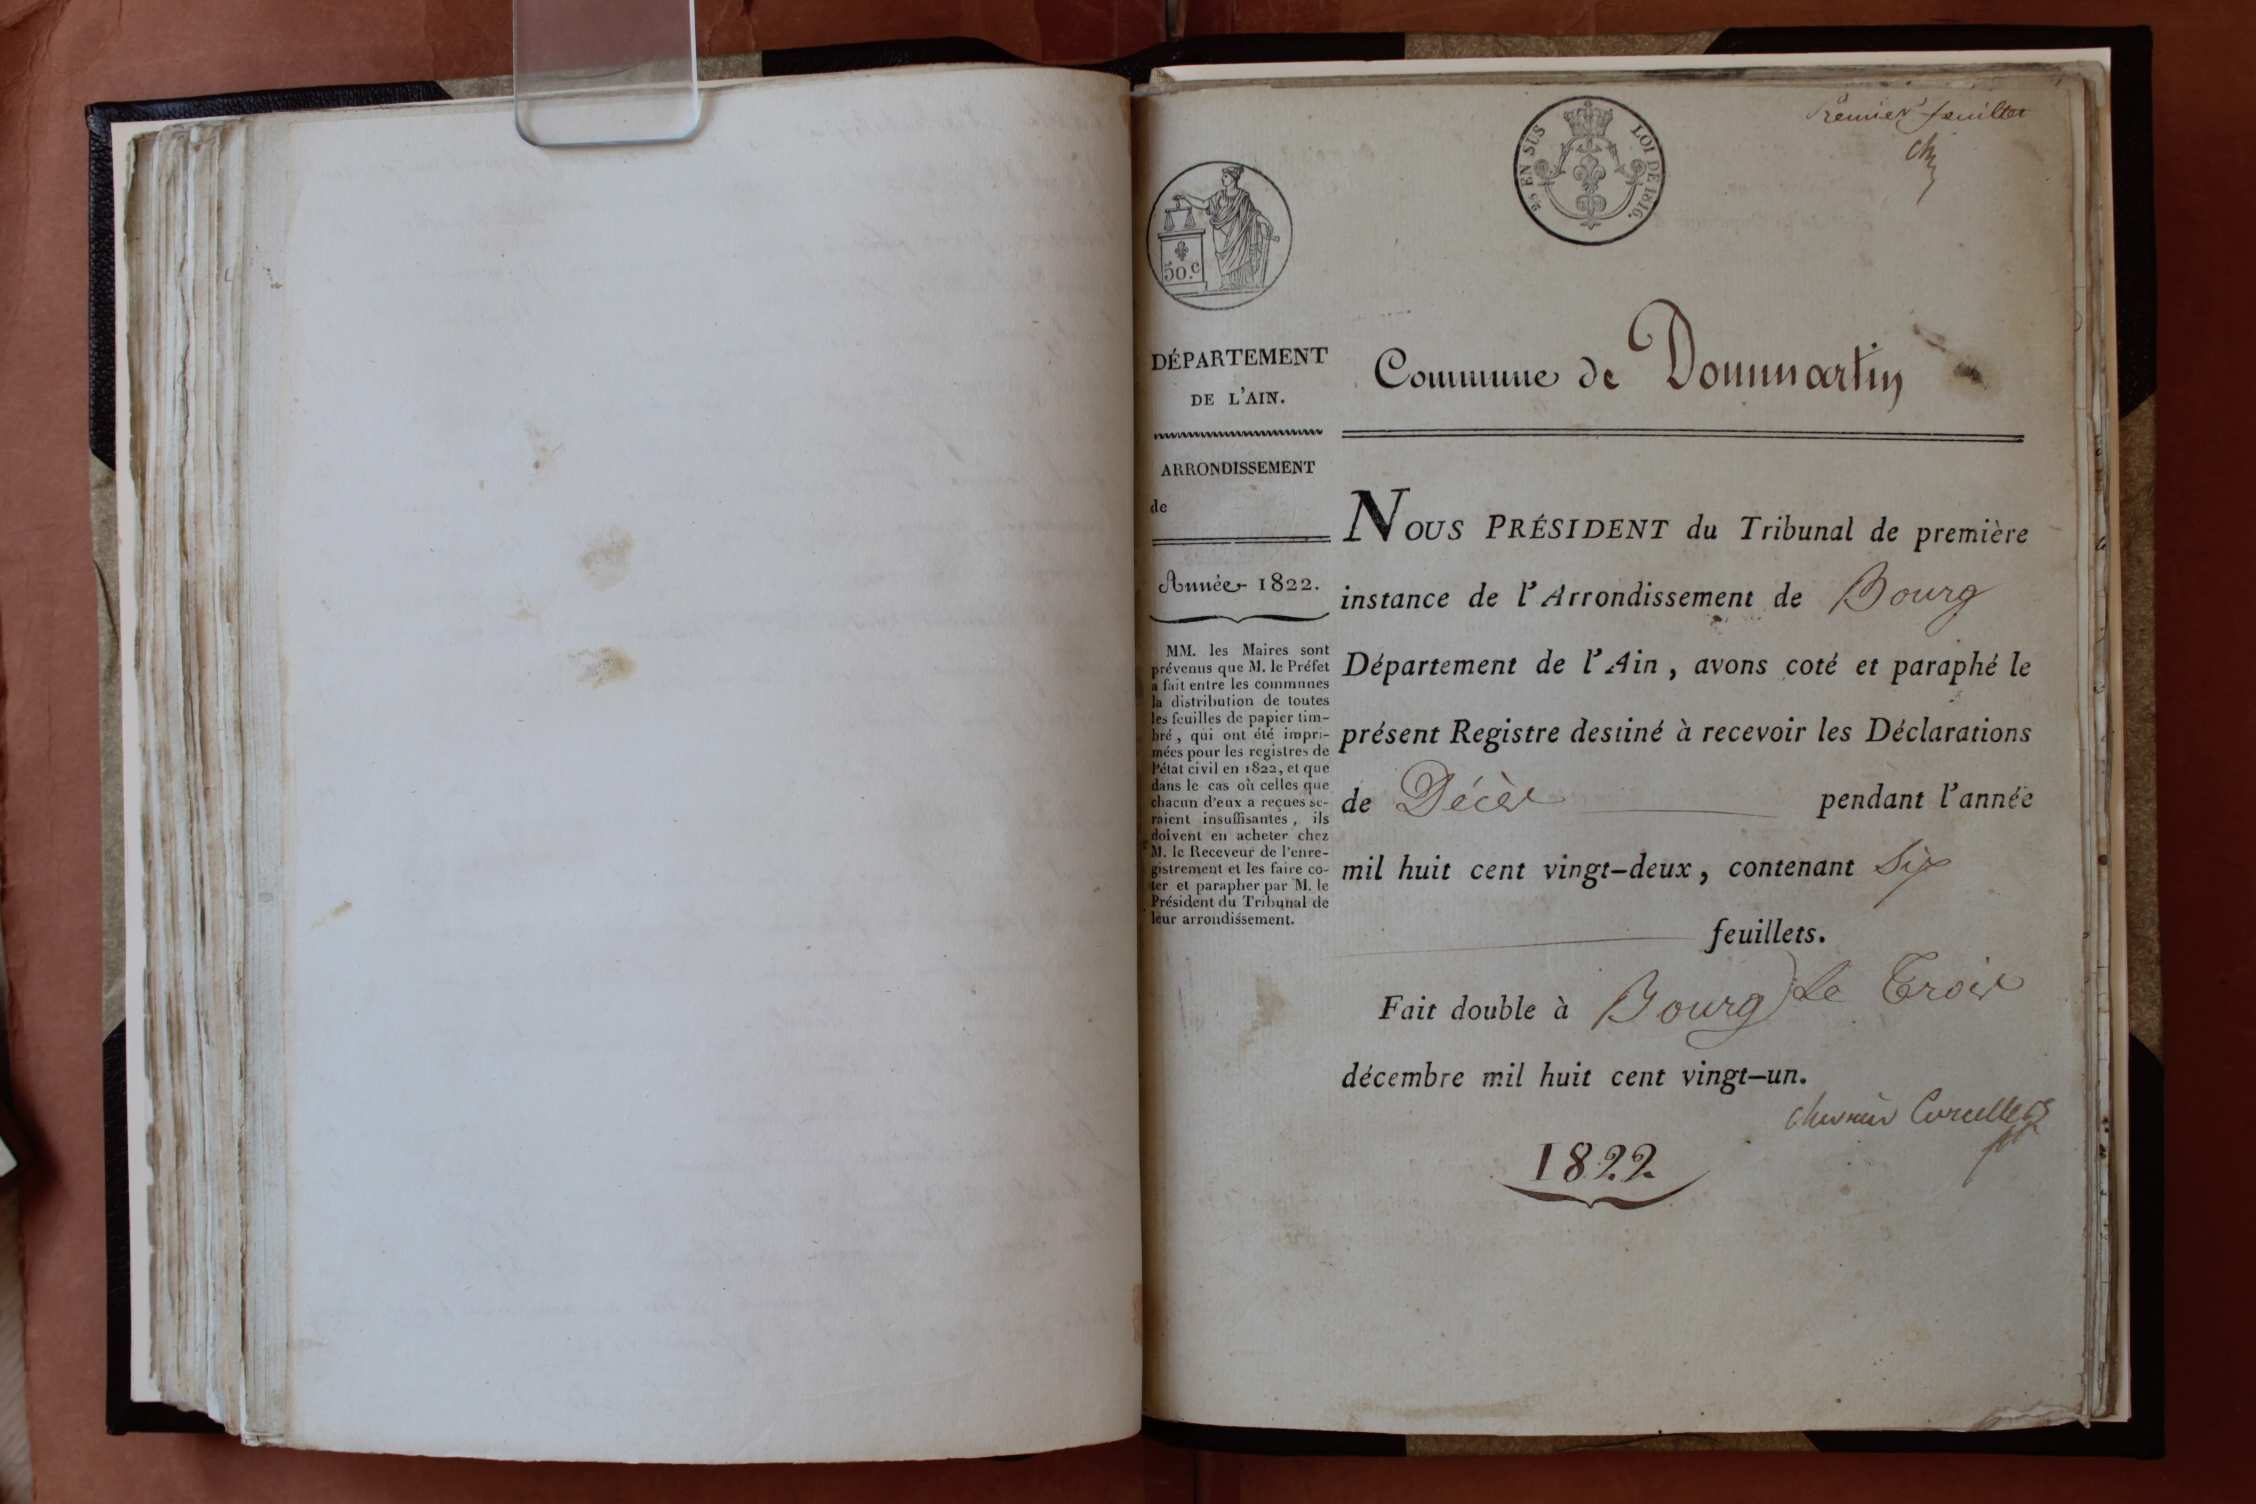 Premier feuillet
25 EN SUS
LOI DE 1816.
50.c
DÉPARTEMENT
DE L'AIN.
ARRONDISSEMENT
de
Année 1822.
MM. les Maires sont
prévenus que M. le Préfet
a fait entre les communes
la distribution de toutes
les feuilles de papier tim-
bré, qui ont été impri-
mées pour les registres de
l'état civil en 1822, et que
dans le cas où celles que
chacun d'eux a reçues se-
raient insuffisantes, ils
doivent en acheter chez
M. le Receveur de l'enre-
gistrement et les faire co-
ter et parapher par M. le
Président du Tribunal de
leur arrondissement.
Commune de Dommartin
NOUS PRÉSIDENT du Tribunal de première
instance de l'Arrondissement de Bourg
Département de l'Ain, avons coté et paraphé le
présent Registre destiné à recevoir les Déclarations
de Décès pendant l'année
mil huit cent vingt-deux, contenant Six
feuillets.
Fait double à Bourg Le Trois
décembre mil huit cent vingt-un.
Chevrier Corcelles
1822